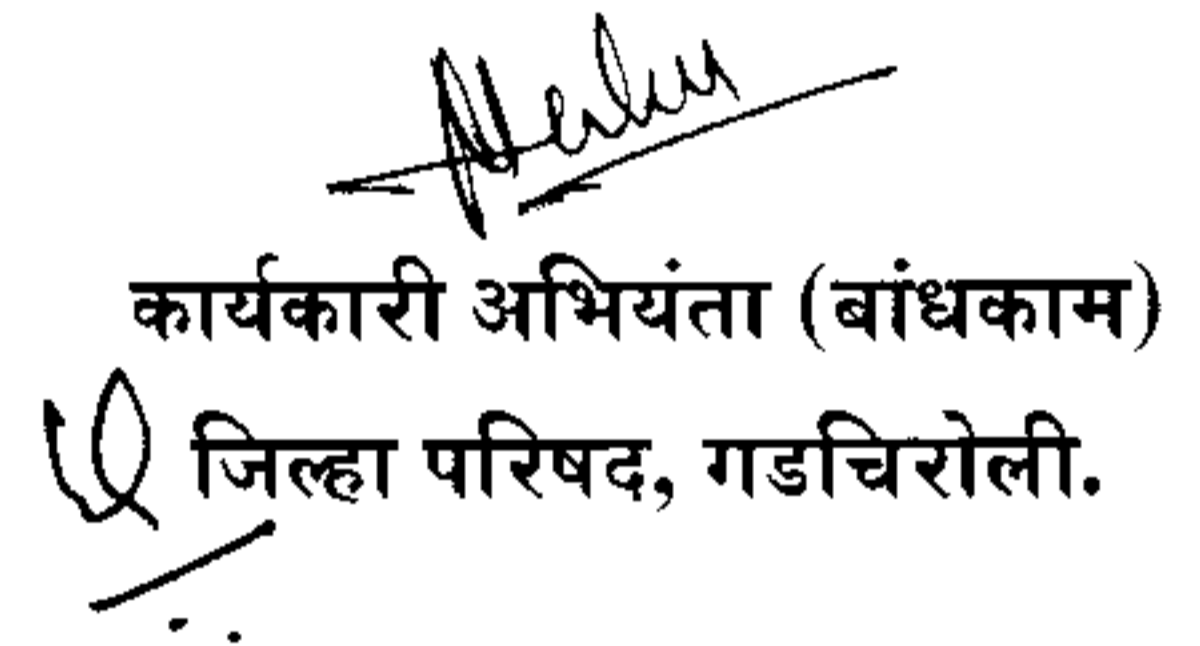 कार्यकारी अभियंता (बांधकाम)
जिल्हा परिषद, गडचिरोली.